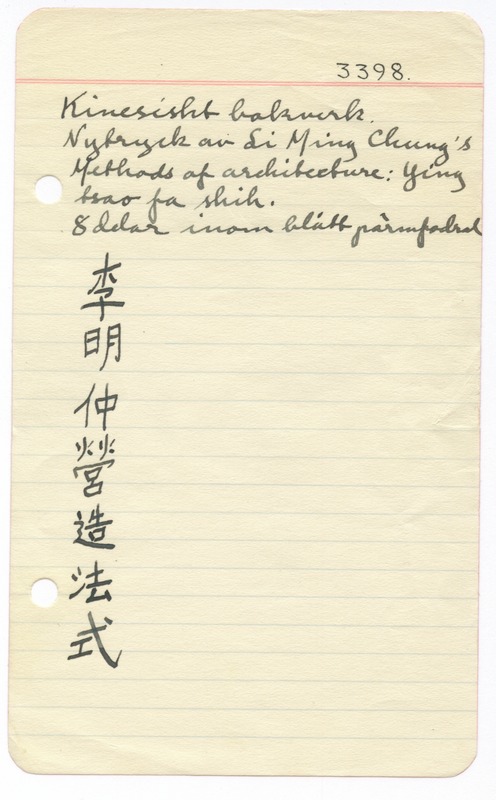 3398.
Kinesiskt bokverk.
Nytryck av Li Ming Chung's
Methods of architecture: Ying
tsao fa shih.
8 delar inom blått pärmfodral
李明仲營造法式